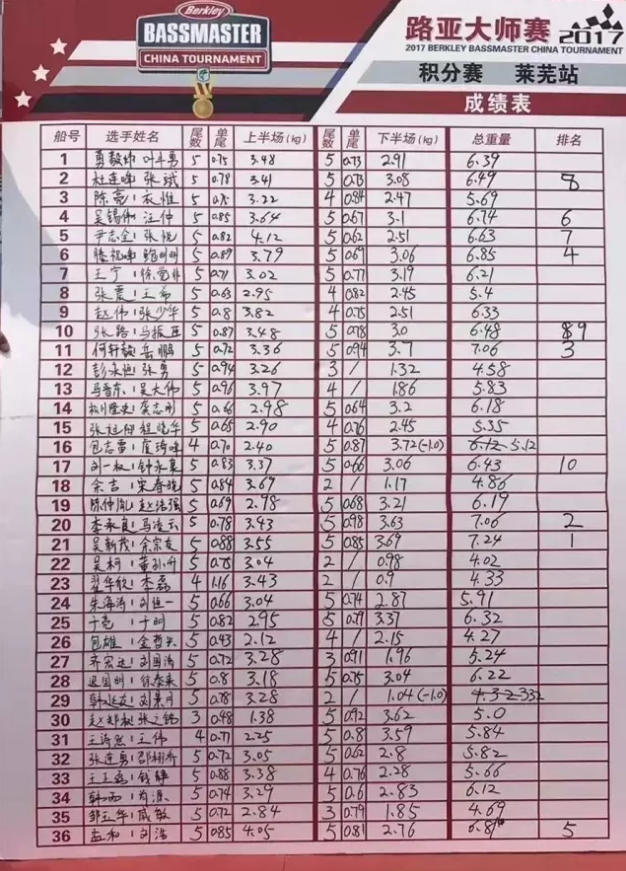 Berkley
BASSMASTER
CHINA TOURNAMENT
路亚大师赛 2017
2017 BERKLEY BASSMASTER CHINA TOURNAMENT
积分赛 莱芜站
成绩表
船号 选手姓名 尾数 单尾 上半场(kg) 尾数 单尾 下半场(kg) 总重量 排名
1 5 0.75 3.48 5 0.73 2.91 6.39
2 张斌 5 0.78 3.41 5 0.73 3.08 6.49 8
3 陈亮 5 3.22 4 0.84 2.47 5.69
4 吴锡伟 汪仲 5 0.85 3.64 5 0.67 3.1 6.74 6
5 尹志全 张悦 5 0.82 4.12 5 0.62 2.51 6.63 7
6 5 0.89 3.79 5 0.69 3.06 6.85 4
7 王宁 5 0.71 3.02 5 0.77 3.19 6.21
8 张震 王希 5 0.63 2.95 4 0.82 2.45 5.4
9 赵伟 张少华 5 0.8 3.82 4 0.75 2.51 6.33
10 张路 马振亚 5 0.87 3.48 5 0.78 3.0 6.48 9
11 何轩毅 岳鹏 5 0.72 3.36 5 0.94 3.7 7.06 3
12 张勇 5 0.94 3.26 3 / 1.32 4.58
13 吴大伟 5 0.96 3.97 4 / 1.86 5.83
14 龚志刚 5 0.66 2.98 5 0.64 3.2 6.18
15 5 0.65 2.90 4 0.76 2.45 5.35
16 4 0.70 2.40 5 0.87 3.72(-1.0) 6.12 5.12
17 刘一权 钟永泉 5 0.83 3.37 5 0.66 3.06 6.43 10
18 余吉 宋春晓 5 0.84 3.69 2 / 1.17 4.86
19 陈仲胤 赵洁强 5 0.69 2.98 5 0.68 3.21 6.19
20 李永良 马凌云 5 0.78 3.43 5 0.98 3.63 7.06 2
21 吴新茂 余宗友 5 0.88 3.55 5 0.85 3.69 7.24 1
22 吴柯 5 0.75 3.04 2 / 0.98 4.02
23 翟华钦 李磊 4 1.16 3.43 2 / 0.9 4.33
24 朱海涛 刘恒一 5 0.66 3.04 5 0.74 2.87 5.91
25 于亮 于明 5 0.82 2.95 5 0.79 3.37 6.32
26 包雄 5 0.43 2.12 4 / 2.15 4.27
27 齐宏运 刘国涛 5 0.72 3.28 3 0.91 1.96 5.24
28 徐泰来 5 0.8 3.18 5 0.75 3.04 6.22
29 韩延友 刘景川 5 0.78 3.28 2 / 1.04(-1.0) 4.32 3.32
30 3 0.48 1.38 5 0.92 3.62 5.0
31 王涛然 王伟 4 0.77 2.25 5 0.8 3.59 5.84
32 张连勇 5 0.72 3.05 5 0.62 2.8 5.82
33 钱静 5 0.88 3.38 4 0.76 2.28 5.66
34 韩西 肖源 5 0.74 3.29 5 0.6 2.83 6.12
35 邹立华 戚敏 5 0.72 2.84 3 0.79 1.85 4.69
36 孟和 刘浩 5 0.85 4.05 5 0.81 2.76 6.81 5